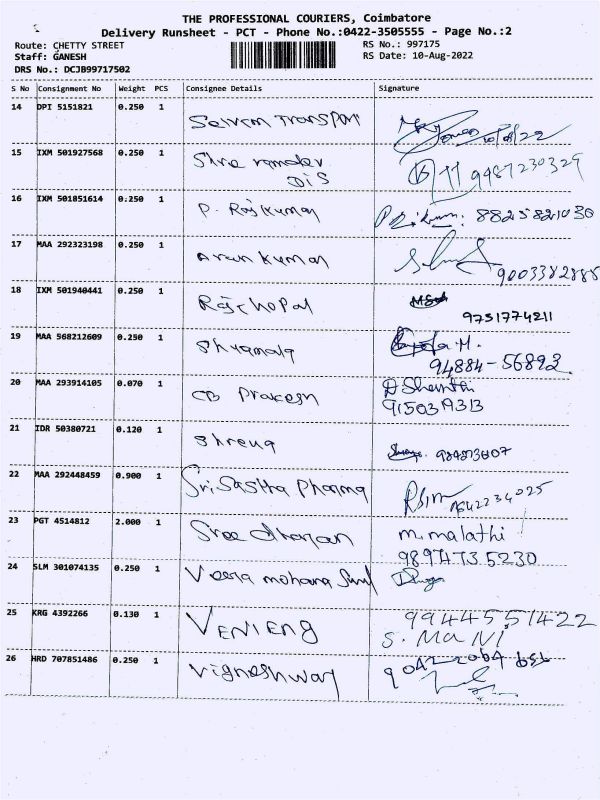 THE PROFESSIONAL COURIERS, Coimbatore
Delivery Runsheet - PCT - Phone No.:0422-3505555 - Page No.:2
Route: CHETTY STREET RS No.: 997175
Staff: GANESH RS Date: 10-Aug-2022
DRS No.: DCJB99717502
S No Consignment No Weight PCS Consignee Details Signature
14 DPI 5151821 0.250 1 Transport
15 IXM 501927568 0.250 1 Shree ramdev 9487230329
DIS
16 IXM 501851614 0.250 1 P. Rajkumar 8825821030
17 MAA 292323198 0.250 1 Arun kumar
9003382885
18 IXM 501940441 0.250 1 Rajgopal
9751774211
19 MAA 568212609 0.250 1 Shyamala
94884-56893
20 MAA 293914105 0.070 1 CB Prakash D Shanthi
21 IDR 50380721 0.120 1 Shreya
22 MAA 292448459 0.900 1 Sri Sastha Pharma
23 PGT 4514812 2.000 1 Sree dharan m. malathi
24 SLM 301074135 0.250 1 Veera mohana
25 KRG 4392266 0.130 1 VENIENG 9944551422
S. MANI
26 HRD 707851486 0.250 1 Vigneshwar